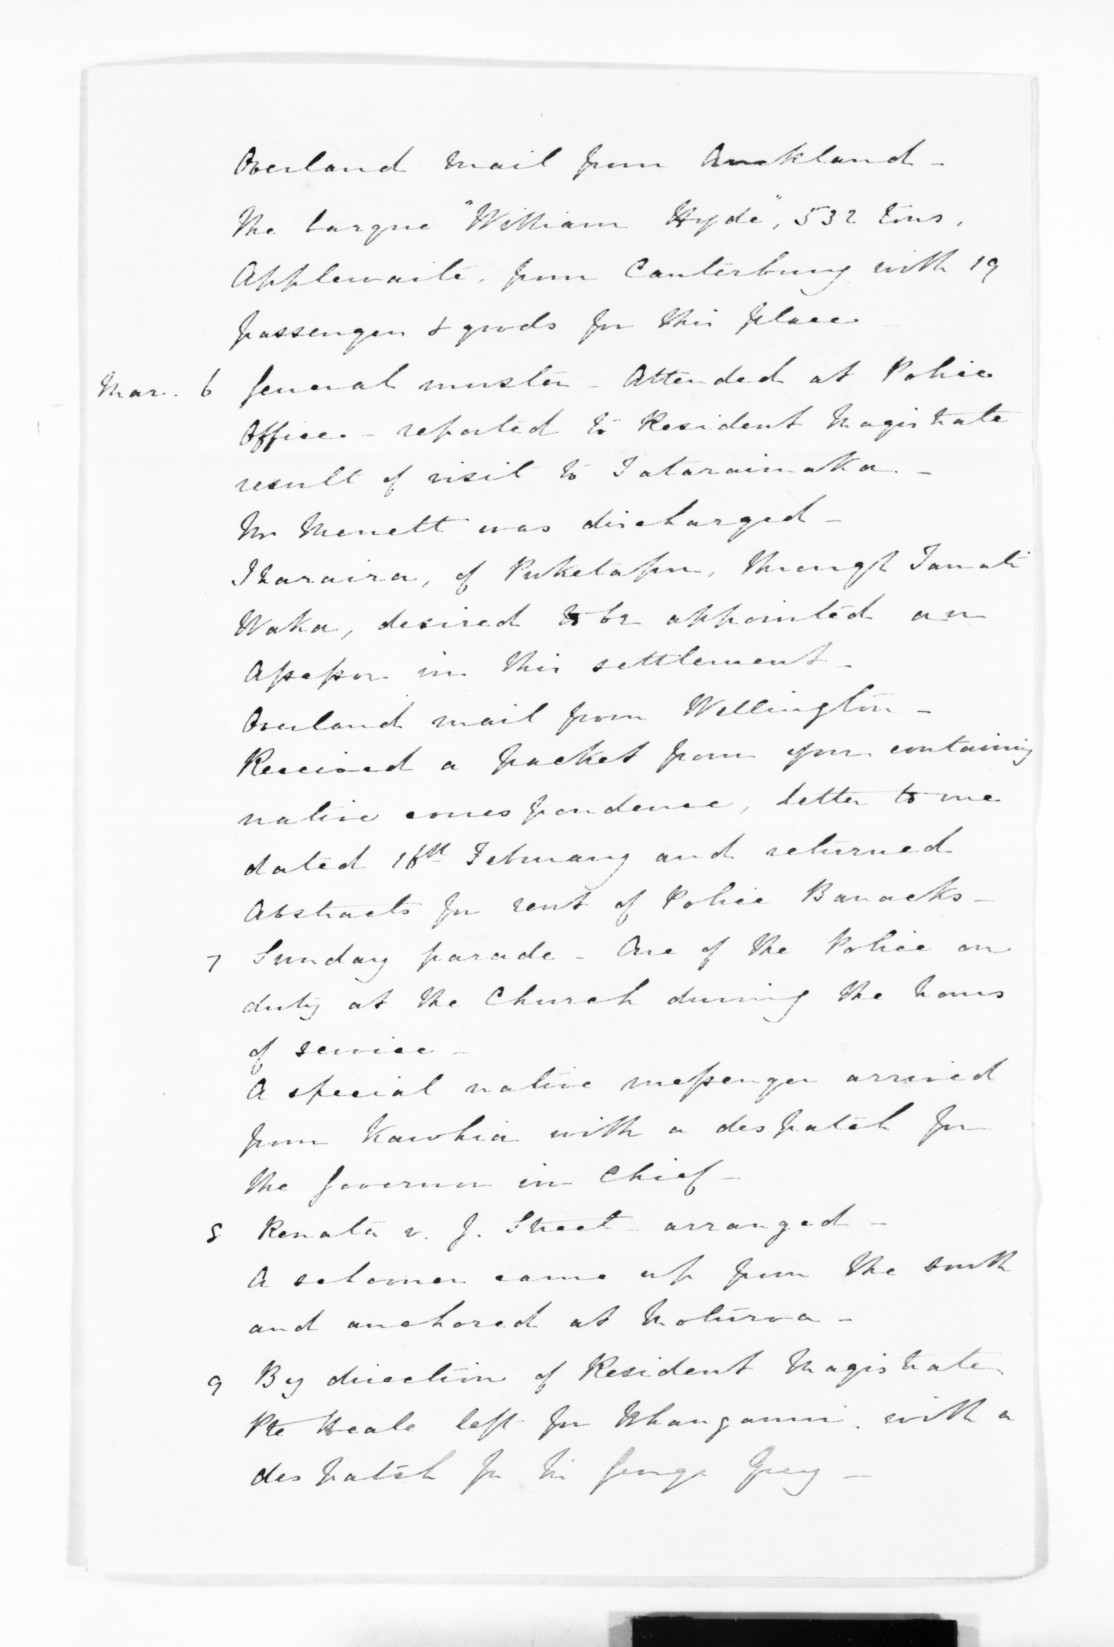 Overland mail from Auckland -
The barque "William Hyde", 532 tons,
Applewaite, from Canterbury with 19
passengers & goods for this place -
Mar. 6 General muster - Attended at Police
Office - reported to Resident Magistrate
result of visit to Tataraimaka -
Mr Merrett was discharged -
Iharaira, of Puketapu, through Tamati
Waka, desired to be appointed an
Assessor in this settlement -
Overland mail from Wellington -
Received a packet from you containing
native correspondence, letter to me
dated 18th February and returned
Abstracts for rent of Police Barracks -
7 Sunday parade - One of the Police on
duty at the Church during the hours
of service -
A special native messenger arrived
from Kawhia with a despatch for
the Governor in Chief -
8 Renata v. J. Street - arranged -
A schooner came up from the south
and anchored at Moturoa -
9 By direction of Resident Magistrate
Pte Heale left for Whanganui with a
despatch for Sir George Grey -